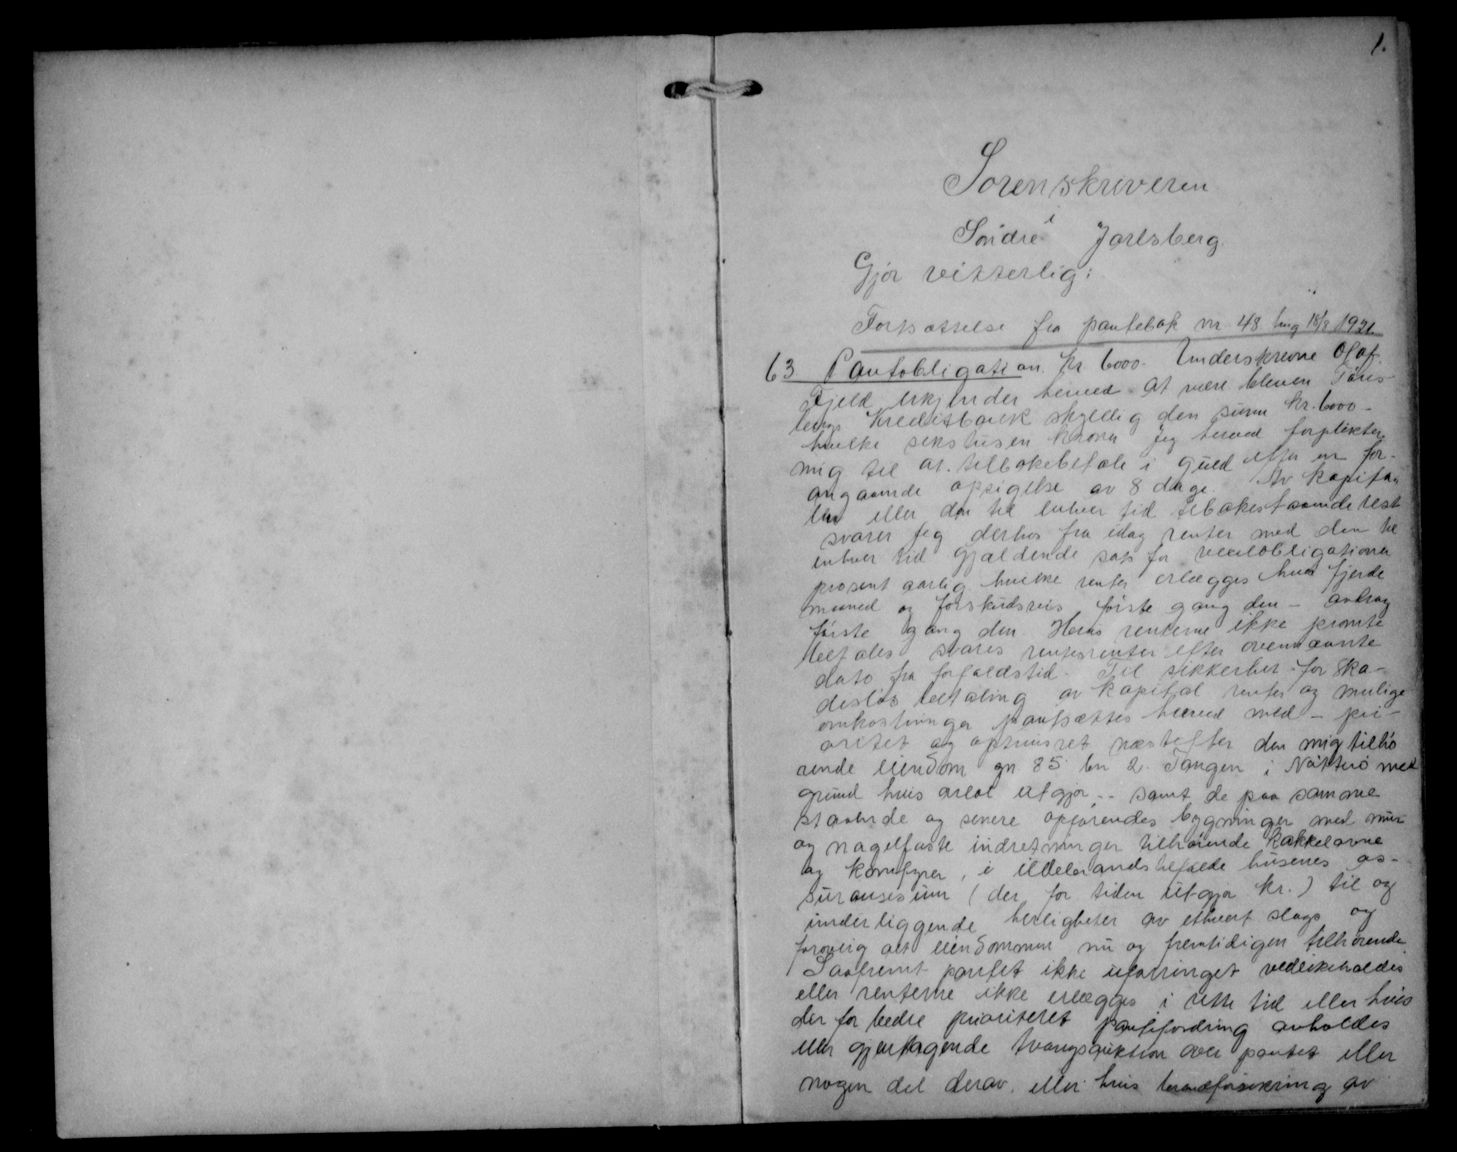 1.
Sorenskriveren
i
Söndre Jarlsberg
Gjör vitterlig:
Fortsættelse fra pantebok nr. 48 ting 18/8 1921
63 Pantobligation. kr 6000.- Underskrevne Olaf
Fjeld erkjender herved at være bleven Töns-
bergs Kreditbank skyldig den sum kr. 6000-
hvilke sekstusen kroner jeg herved forplikter
mig til at tilbakebetale i guld efter en for-
angaaende opsigelse av 8 dage. Av kapita-
len eller den til enhver tid tilbakestaaende rest
svarer jeg derhos fra idag renter med den til
enhver tid gjældende sats for vexelobligationer
prosent aarlig hvilke renter erlægges hver fjerde
maaned og forskudsvis, förste gang den - avdrag
förste gang den. Heves renterne ikke promte
betales svares rentesrenter efter ovennævnte
dato fra forfaldstid. Til sikkerhet for ska-
deslös betaling av kapital renter og mulige
omkostninger pantsættes herved med - pri-
oritet og optrinsret næstefter den mig tilhö
rende eiendom gn 85 bn 2. Tangen i Nötterö med
grund hvis areal utgjör -- samt de paa samme
staaende og senere opförendes bygninger med mur
og nagelfaste indretninger tilhörende kakkelovne
og komfyrer, i ildebrandstilfælde husenes as-
suransesum (der for tiden utgjör kr. ) til og
underliggende herligheter av ethvert slags og
forövrig alt eiendommen nu og fremtidigen tilhörende.
Saafremt pantet ikke uforringet vedlikeholdes
eller renterne ikke erlægges i rette tid eller hvis
der for bedre prioriteret pantefordring avholdes
eller gjentagende tvangsauktion over pantet eller
nogen del derav. eller hvis brandforsikring av